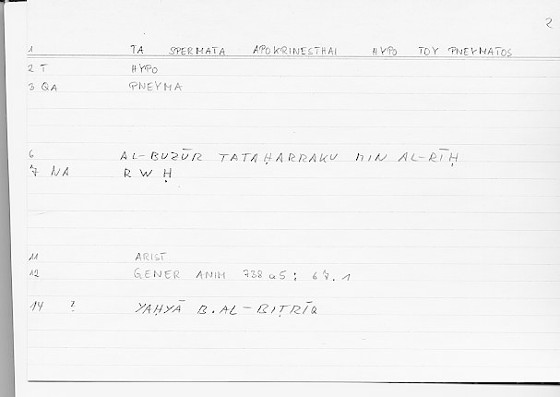 2
1 TA SPERMATA APOKRINESTHAI HYPO TOY PNEYMATOS
2 T HYPO
3 QA PNEYMA
6 AL-BUZŪR TATAḤARRAKU MIN AL-RĪḤ
7 NA RWḤ
11 ARIST
12 GENER ANIM 738 a5 ; 67.1
14 ? YAḤYĀ B. AL-BIṬRĪQ